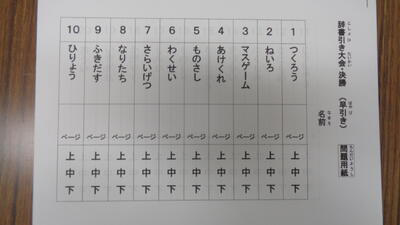 辞書引き大会・決勝 《早引き》 問題用紙
じしょび たいかい はやび もんだいようし
名前
なまえ
1 つくろう ページ 上 中 下
2 ねいろ ページ 上 中 下
3 マスゲーム ページ 上 中 下
4 あけくれ ページ 上 中 下
5 ものさし ページ 上 中 下
6 わくせい ページ 上 中 下
7 さらいげつ ページ 上 中 下
8 なりたち ページ 上 中 下
9 ふきだす ページ 上 中 下
10 ひりょう ページ 上 中 下